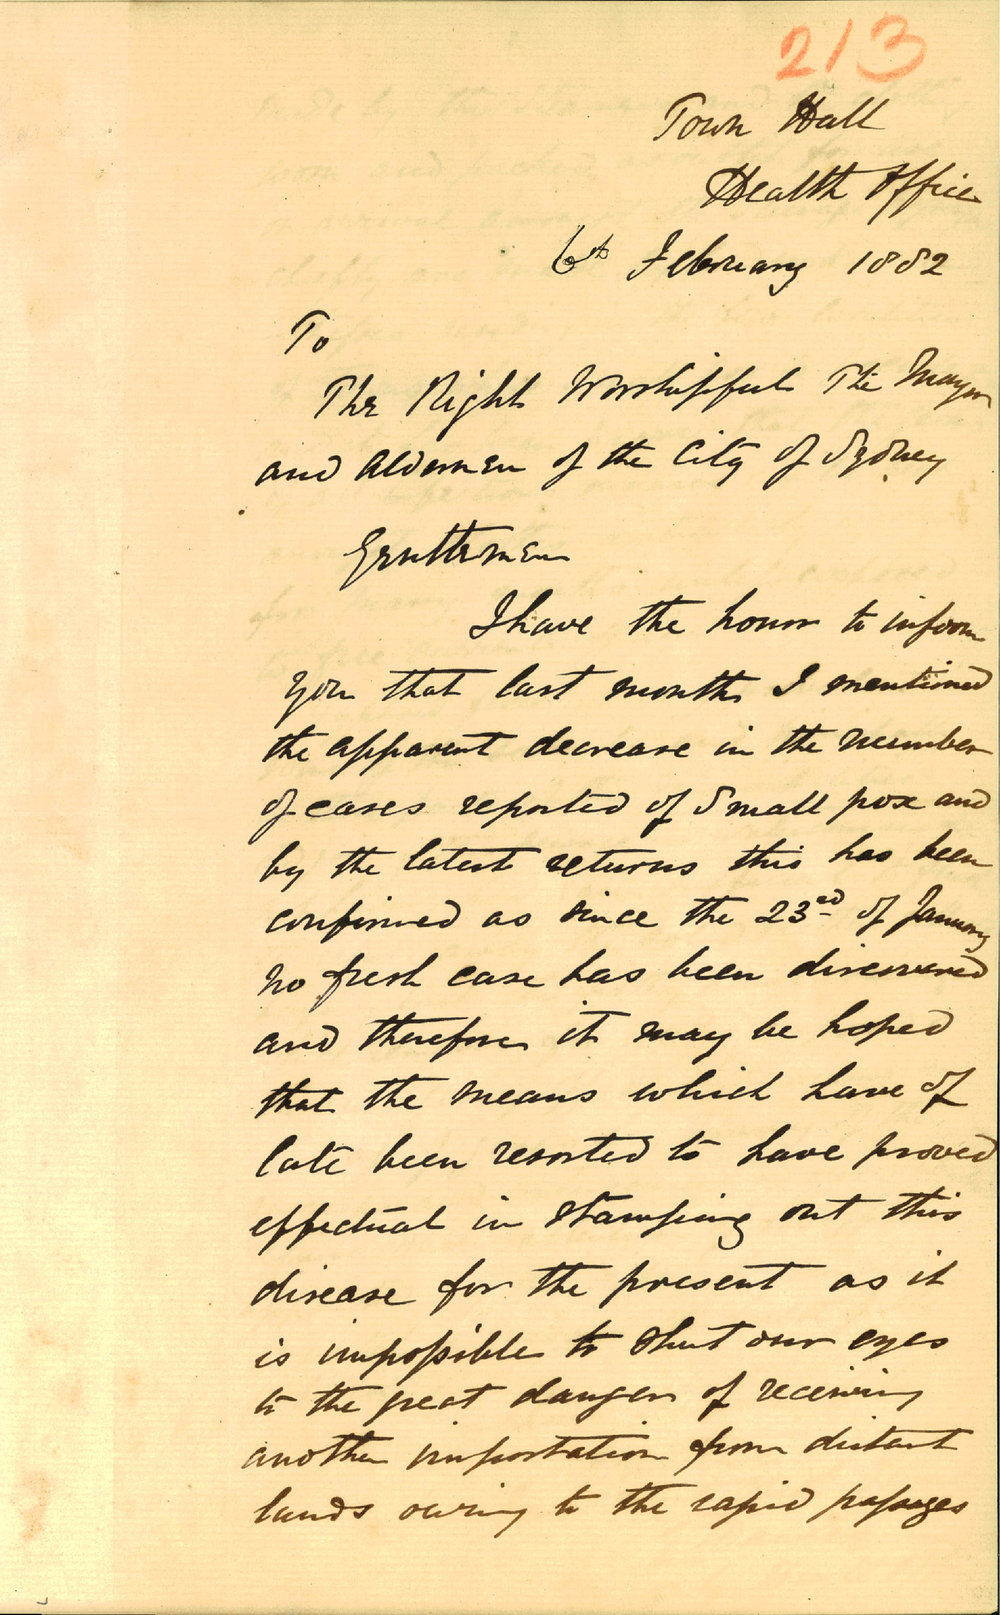 213
Town Hall
Health Office
6th February 1882
To
The Right Worshipful The Mayor
and Aldermen of the City of Sydney
Gentlemen
I have the honor to inform
you that last month I mentioned
the apparent decrease in the number
of cases reported of Small pox and
by the latest returns this has been
confirmed as since the 23rd of January
no fresh case has been discovered
and therefore it may be hoped
that the means which have of
late been resorted to have proved
effectual in stamping out this
disease for the present as it
is impossible to shut our eyes
to the great danger of receiving
another importation from distant
lands owing to the rapid passages